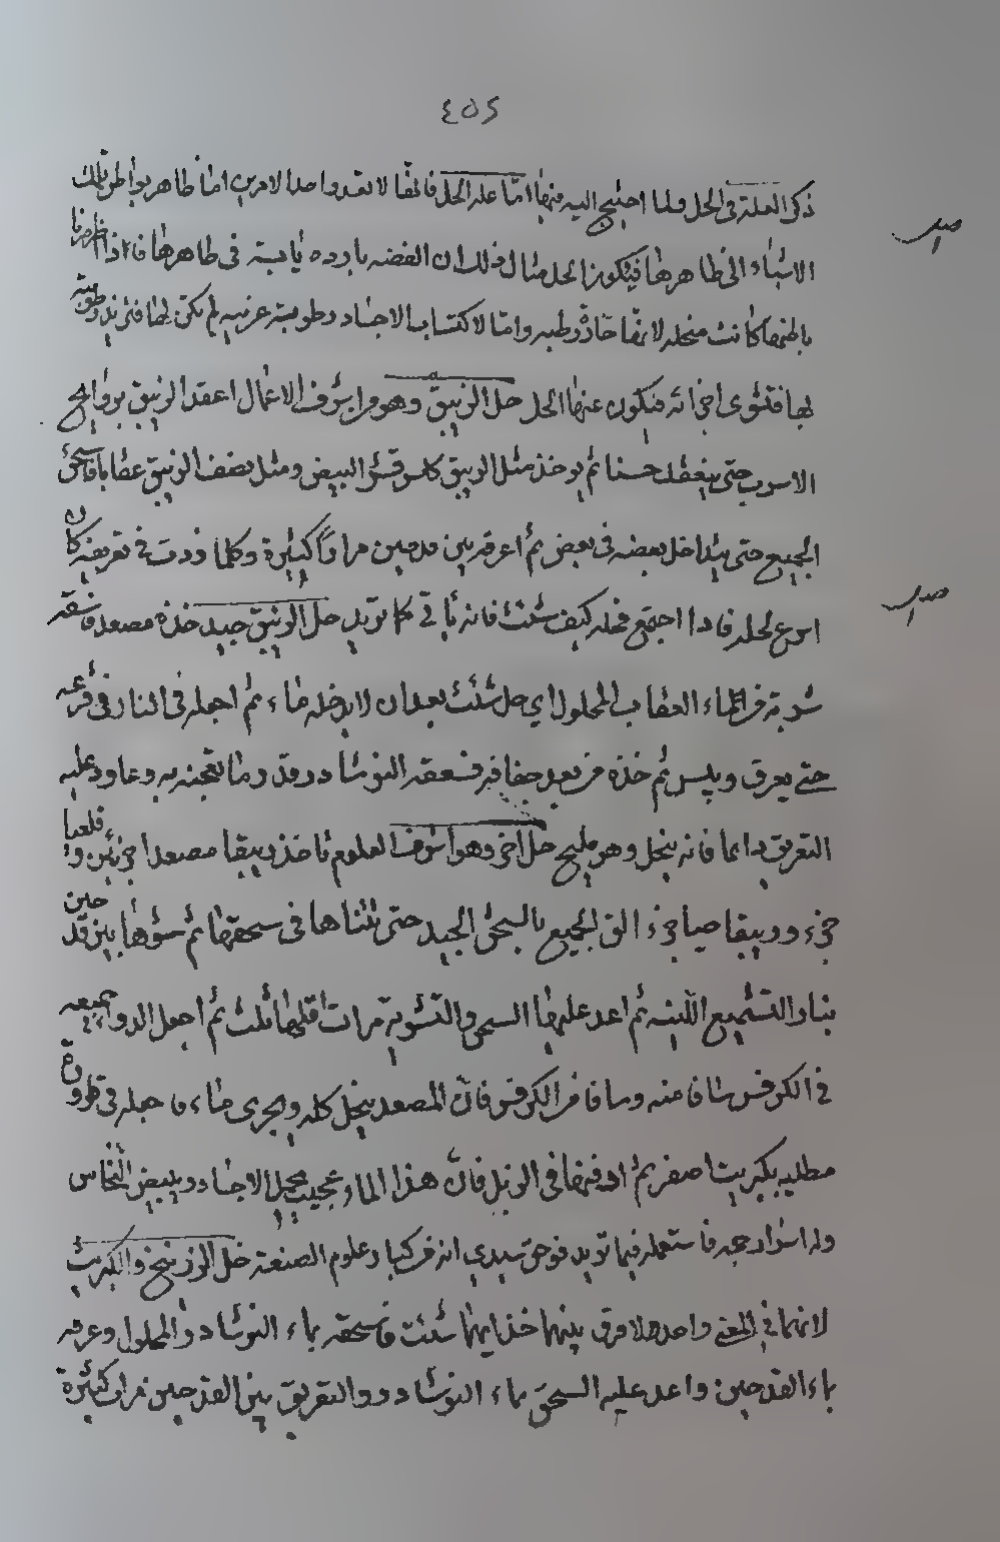 ٤٥٢
ذكر العلة في الحل ولما احتيج اليه منها اما علة الحل فانها لا تعدوا احدا لامرين اما ظاهر بواطن تلك
الاشياء الى ظاهرها فيكون الحل مثال ذلك ان الفضه بارده يابسة في ظاهرها فاذا
باطنها كانت منحله لانها حارة رطبه واما لاكتساب الاجساد رطوبة غريبه لم تكن لها فتزيد رطوبته
بها فتقوى اجزائه فيكون عنها الحل حل الزيبق وهو من اشرف الاعمال اعقد الزيبق بروايح
الاسرب حتى ينعقد حسنا ثم يوخذ مثل الزيبق كلس قشر البيض ومثل نصف الزيبق عقابا فاسحق
الجميع حتى يتداخل بعضه في بعض ثم اعرقه بين قدحين مرارا كثيرة وكلما زدت في تعريقه كان
اسرع لحله فاذا اجتمع فحله كيف شئت فانه يأتي كما تريد حل الزيبق جيد خذه مصعد فاسقه
شربة من الماء العقاب المحلول اي حل شئت بعد ان لا يدخله ماء ثم اجعله في النار في قرعه
حتى يعرق وييبس ثم خذه من بعد جفافه فسعقه النوشادر قدر ما تعجنه به وعاود عليه
التعريق دايما فانه ينحل وهو مليح حل اخر وهو اشرف العلوم تاخذ زيبقا مصعدا جزئين و
جزء وزيبقا حيا جزء الق الجميع بالسحق الجيد حتى تتناها في سحقها ثم شوها بين قدحين
بنار التشميع اللينه ثم اعد عليها السحق والتشوية مرات اقلها ثلث ثم اجعل الدواء جميعه
في الكرفس سافا منه وسافا من الكرفس فان المصعد ينحل كله ويجرى ماء فاجعله في قارورة
مطليه بكبريت اصفر ثم ادفنها في الزبل فان هذا الماء عجيب يحل الاجساد ويبيض النحاس
وله اسرار جمه فاستعمله فيما تريد فوحق سيدي انه من كبار علوم الصنعة حل الزرنيخ والكبريت
لانهما في المعنى واحد لا فرق بينهما خذ ايهما شئت فاسحقه بماء النوشادر المحلول وعرقه
بماء القدحين واعد عليه السحق بماء النوشادر والتعريق بين القدحين مرات كثيرة